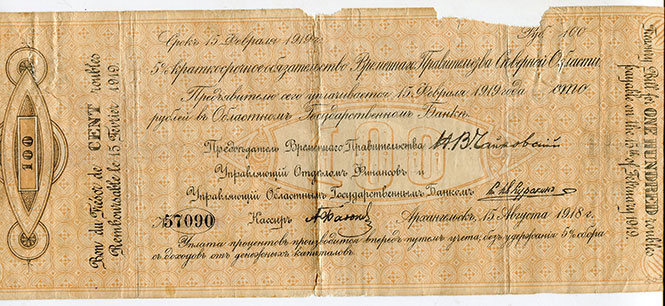 Срокъ 15 Февраля 1919 г.
Руб 100
5% краткосрочное обязательство Временнаго Правительства Сѣверной Области.
Предъявителю сего уплачивается 15 Февраля 1919 года сто
рублей въ Областномъ Государственномъ Банкѣ.
Предсѣдатель Временнаго Правительства Н.В.Чайковскій
Управляющій Отдѣломъ Финансовъ и
Управляющій Областнымъ Государственнымъ Банкомъ
№ 57090 Кассиръ
Архангельскъ, 15 Августа 1918 г.
Уплата процентовъ производится впередъ путемъ учета, безъ удержанія 5% сбора
съ доходовъ отъ денежныхъ капиталовъ.
100
100
Bon du Trésor de CENT roubles
Remboursable le 15 Février 1919.
Treasury Bill for ONE HUNDRED roubles
payable on the 15th of February 1919.